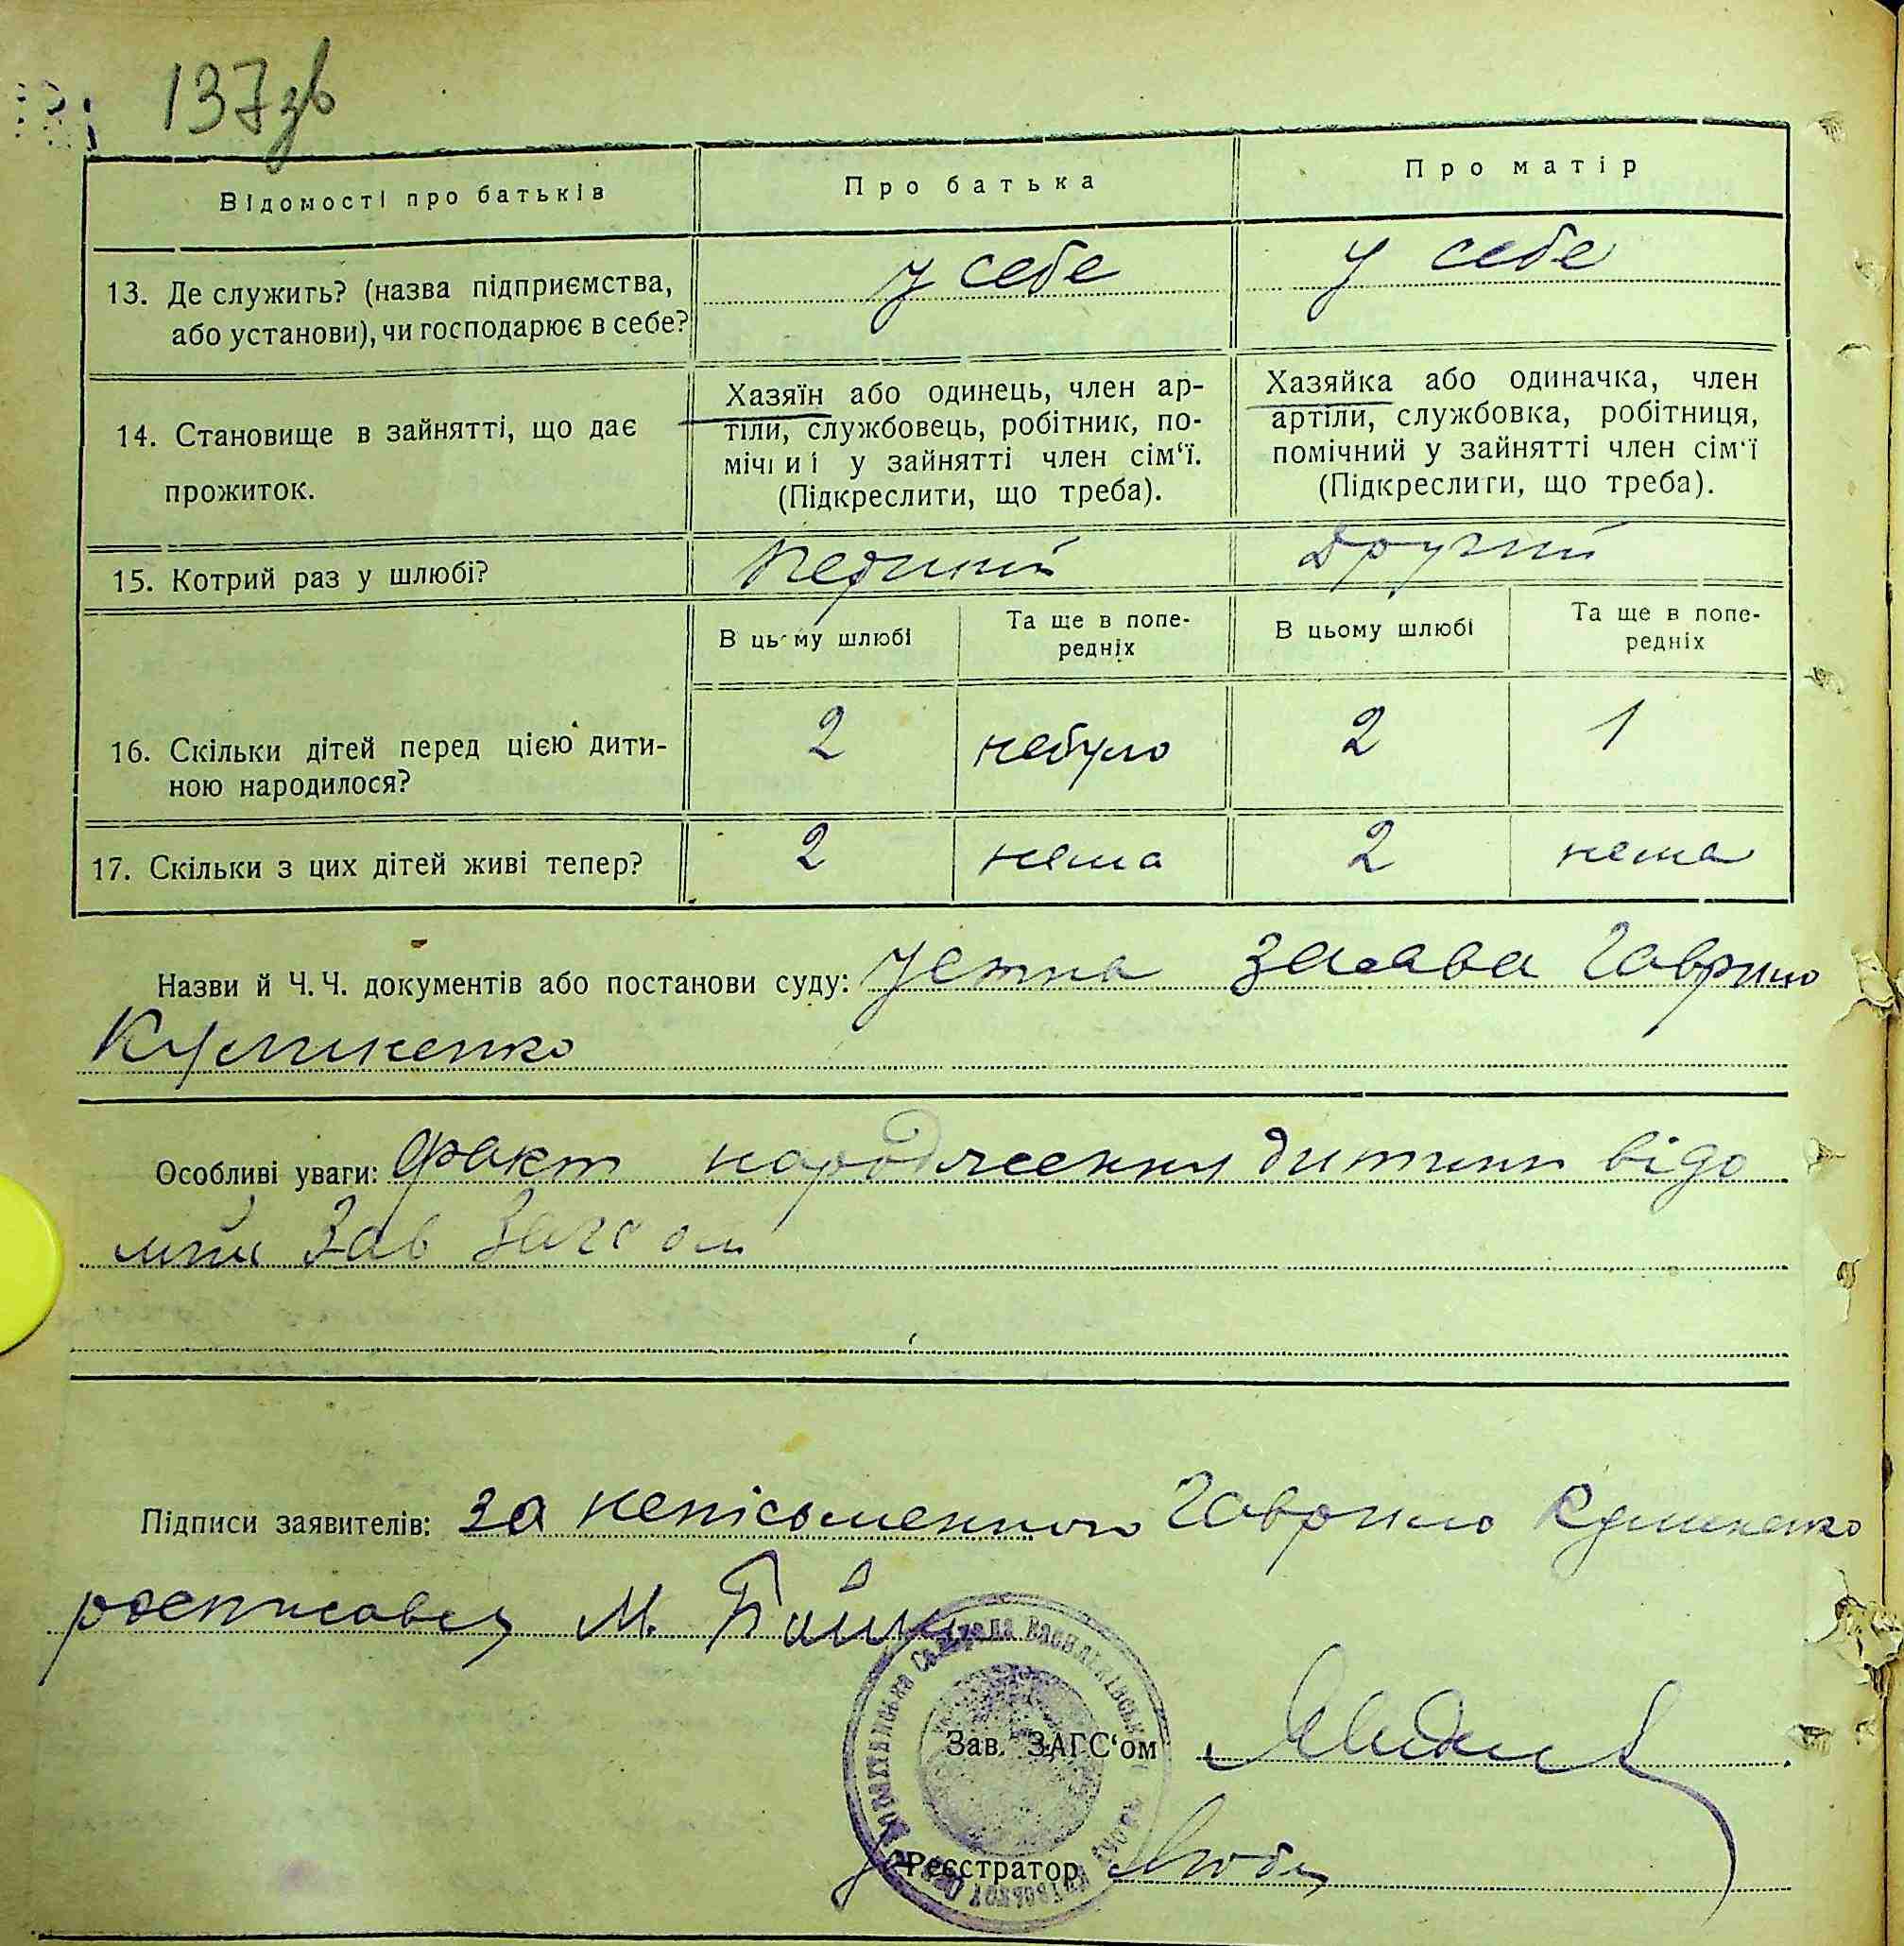 137зв
Відомості про батьків
Про батька
Про матір
13. Де служить? (назва підприємства,
або установи), чи господарює в себе?
у себе
у себе
14. Становище в зайнятті, що дає
прожиток.
Хазяїн або одинець, член ар-
тіли, службовець, робітник, по-
мічний у зайнятті член сім‘ї.
(Підкреслити, що треба).
Хазяйка або одиначка, член
артіли, службовка, робітниця,
помічний у зайнятті член сім‘ї
(Підкреслити, що треба).
15. Котрий раз у шлюбі?
перший
другий
В цьому шлюбі
Та ще в попе-
редніх
В цьому шлюбі
Та ще в попе-
редніх
16. Скільки дітей перед цією дити-
ною народилося?
2
небуло
2
1
17. Скільки з цих дітей живі тепер?
2
нема
2
нема
Назви й Ч. Ч. документів або постанови суду: Устна заява Гаврило
Особливі уваги: факт народження дитини відо
мий Зав Загсом
Підписи заявителів: за неписьменного Гаврило
росписавсь М.
Зав. ЗАГС‘ом
Реєстратор